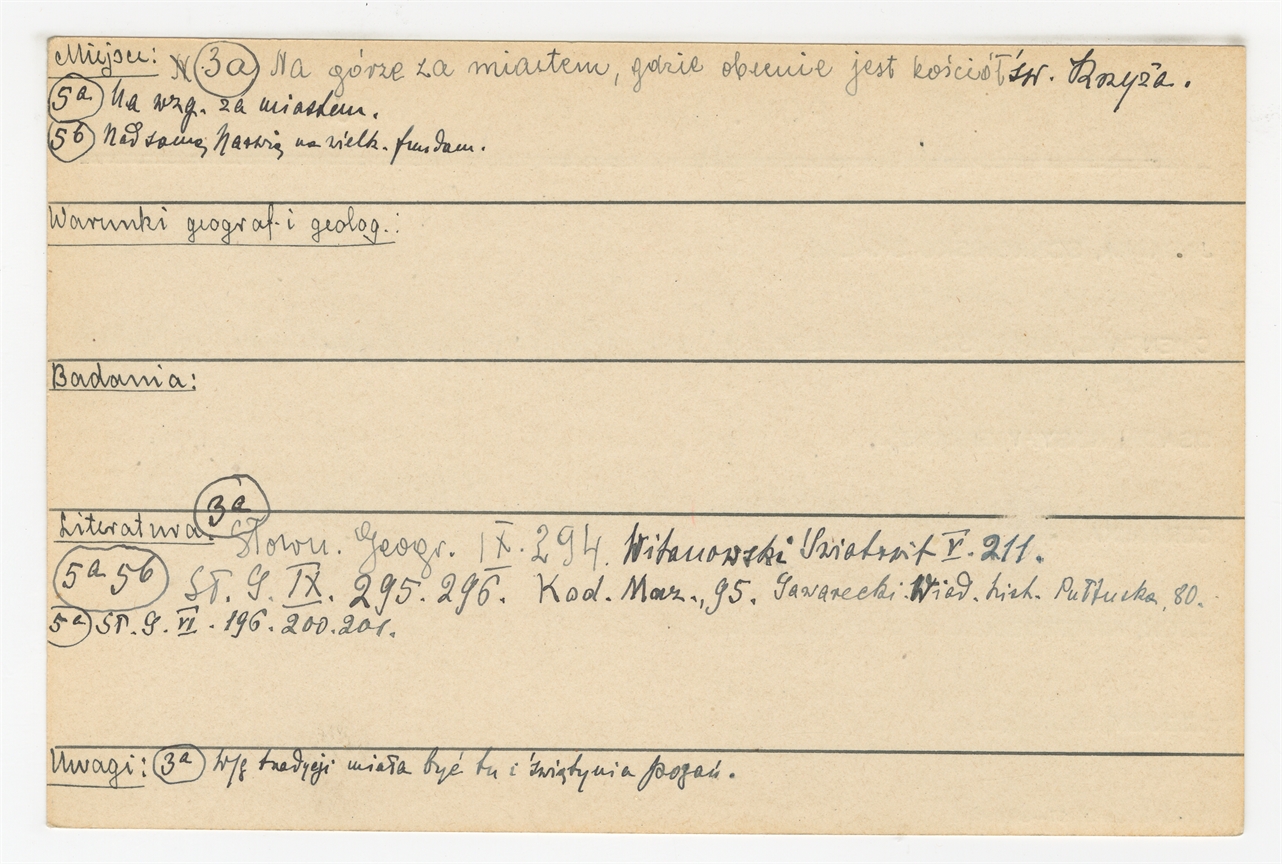 Miejsce: N (3a) Na górze za miastem, gdzie obecnie jest kościół św. Krzyża.
(5a) Na wzg. za miastem.
(5b) Nad samą Narwią na wielk. fundam.
Warunki geograf. i geolog.:
Badania:
Literatura: (3a) Słown. Geogr. IX. 294. Witanowski Światowit V. 211.
(5a 5b) Sł. G. IX. 295. 296. Kod. Maz., 95. Gawarecki Wiad. hist. Pułtuska, 80.
(5a) Sł. G. VI. 196. 200. 201.
Uwagi: (3a) Wg tradycji miała być tu i świątynia pogań.